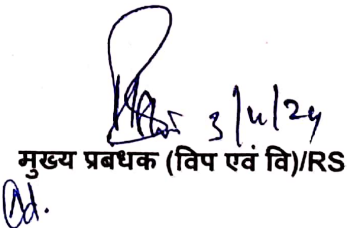 3/4/24
मुख्य प्रबधक (विप एवं वि)/RS